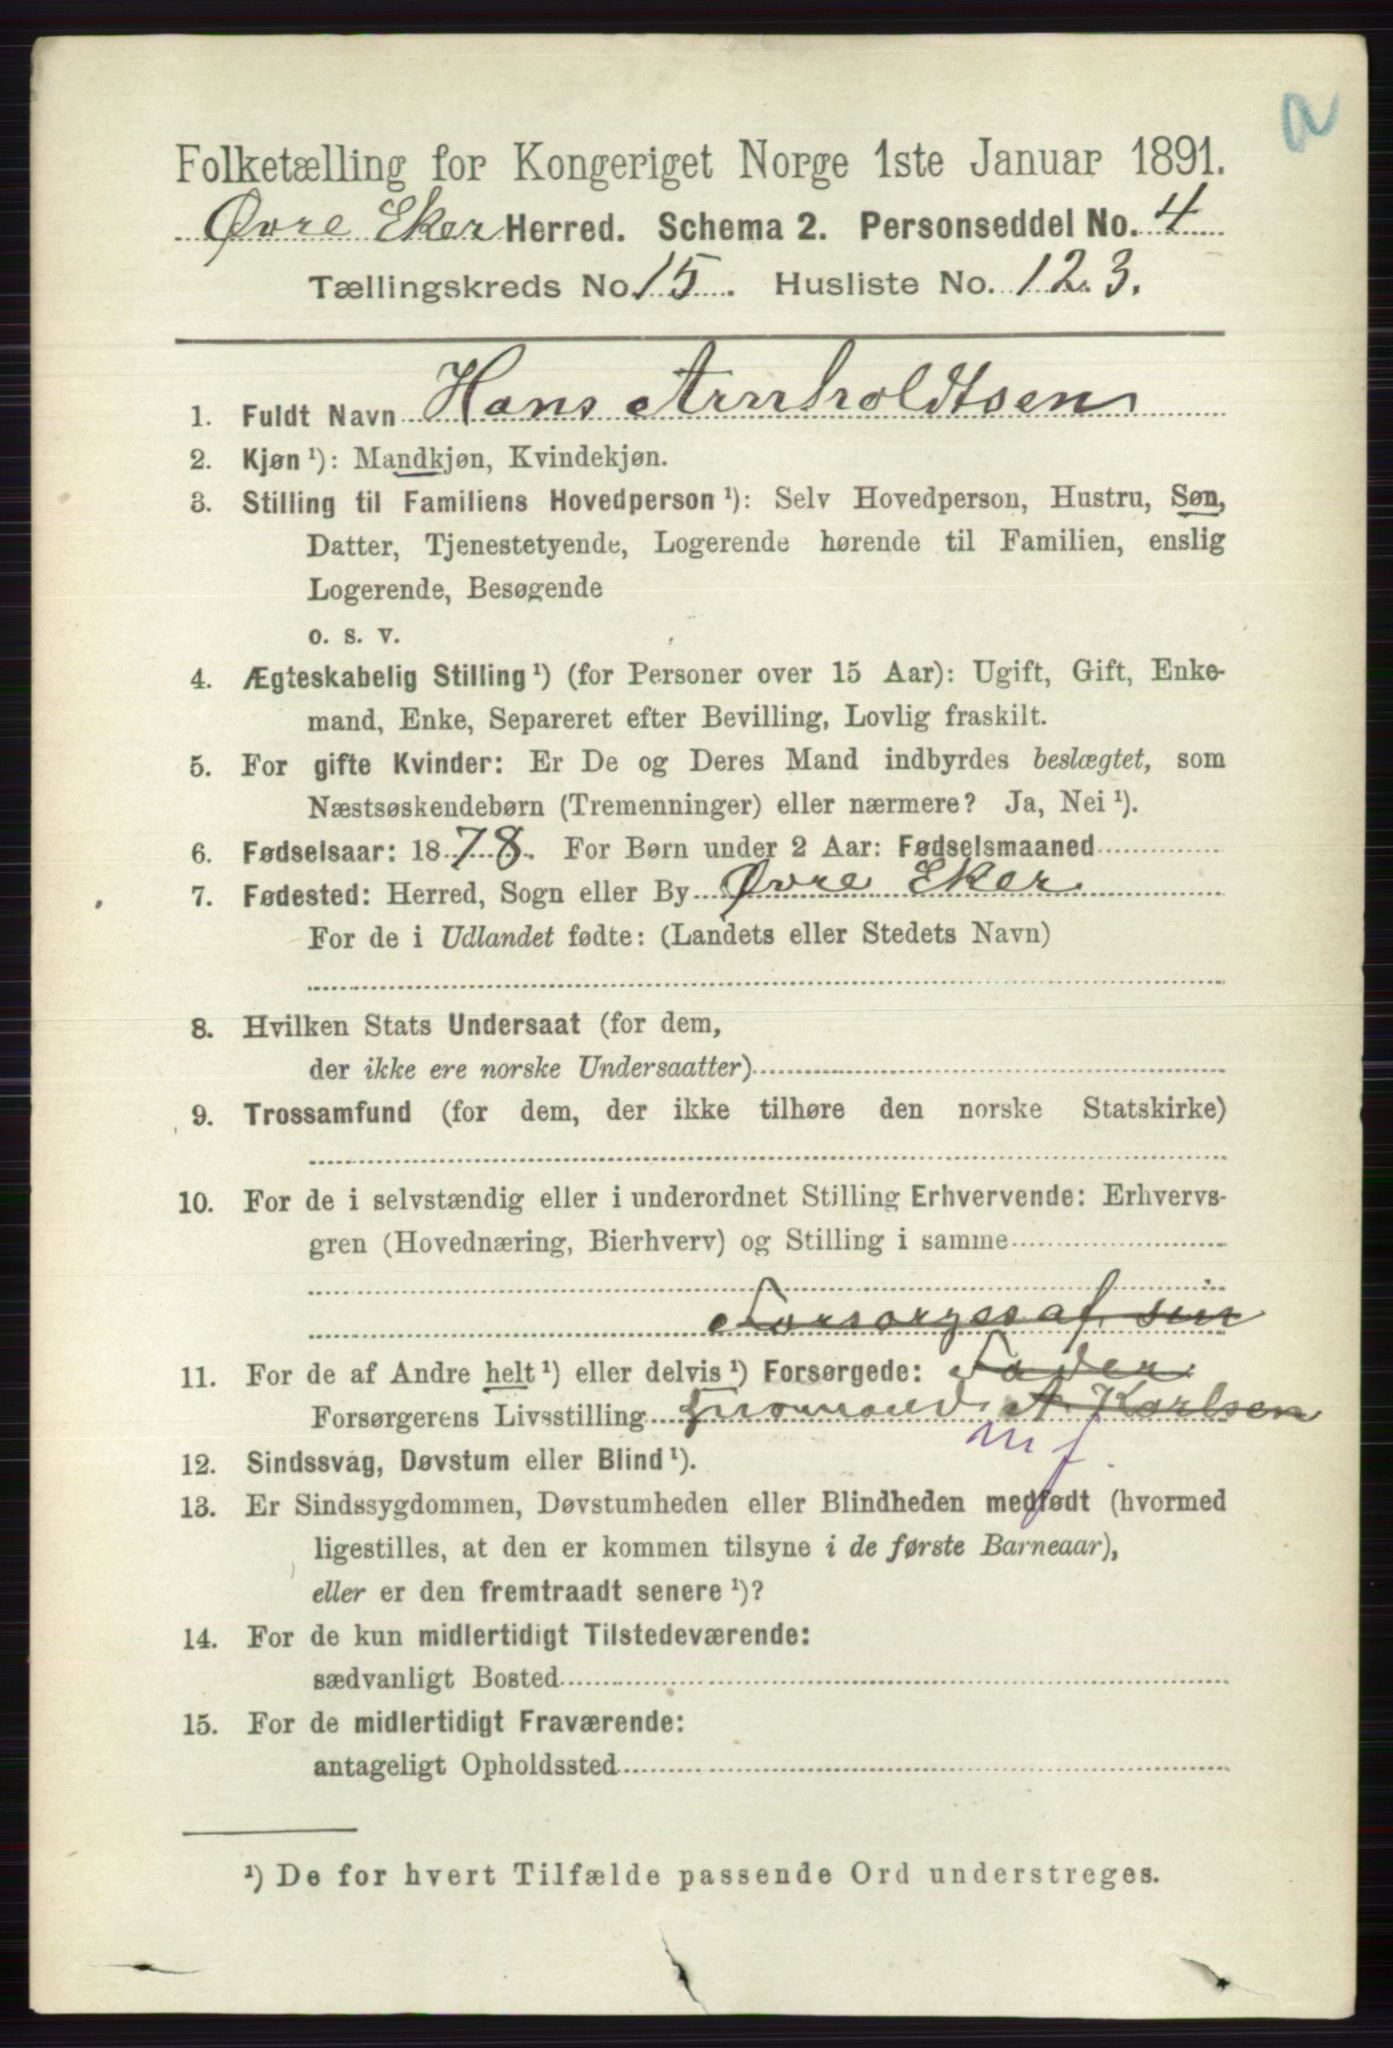 a
Folketælling for Kongeriget Norge 1ste Januar 1891.
Øvre Eker Herred. Schema 2. Personseddel No. 4
Tællingskreds No. 15. Husliste No. 123.
1. Fuldt Navn Hans Arnholdtsen
2. Kjøn ¹): Mandkjøn, Kvindekjøn.
3. Stilling til Familiens Hovedperson ¹): Selv Hovedperson, Hustru, Søn,
Datter, Tjenestetyende, Logerende hørende til Familien, enslig
Logerende, Besøgende
o. s. v.
4. Ægteskabelig Stilling ¹) (for Personer over 15 Aar): Ugift, Gift, Enke-
mand, Enke, Separeret efter Bevilling, Lovlig fraskilt.
5. For gifte Kvinder: Er De og Deres Mand indbyrdes beslægtet, som
Næstsøskendebørn (Tremenninger) eller nærmere? Ja, Nei ¹).
6. Fødselsaar: 1878. For Børn under 2 Aar: Fødselsmaaned
7. Fødested: Herred, Sogn eller By Øvre Eker
For de i Udlandet fødte: (Landets eller Stedets Navn)
8. Hvilken Stats Undersaat (for dem,
der ikke ere norske Undersaatter)
9. Trossamfund (for dem, der ikke tilhøre den norske Statskirke)
10. For de i selvstændig eller i underordnet Stilling Erhvervende: Erhvervs-
gren (Hovednæring, Bierhverv) og Stilling i samme
Forsørges af sin
11. For de af Andre helt ¹) eller delvis ¹) Forsørgede: Fader
Forsørgerens Livsstilling A. Karlsen
12. Sindssvag, Døvstum eller Blind ¹).
13. Er Sindssygdommen, Døvstumheden eller Blindheden medfødt (hvormed
ligestilles, at den er kommen tilsyne i de første Barneaar),
eller er den fremtraadt senere ¹)?
14. For de kun midlertidigt Tilstedeværende:
sædvanligt Bosted
15. For de midlertidigt Fraværende:
antageligt Opholdssted
¹) De for hvert Tilfælde passende Ord understreges.